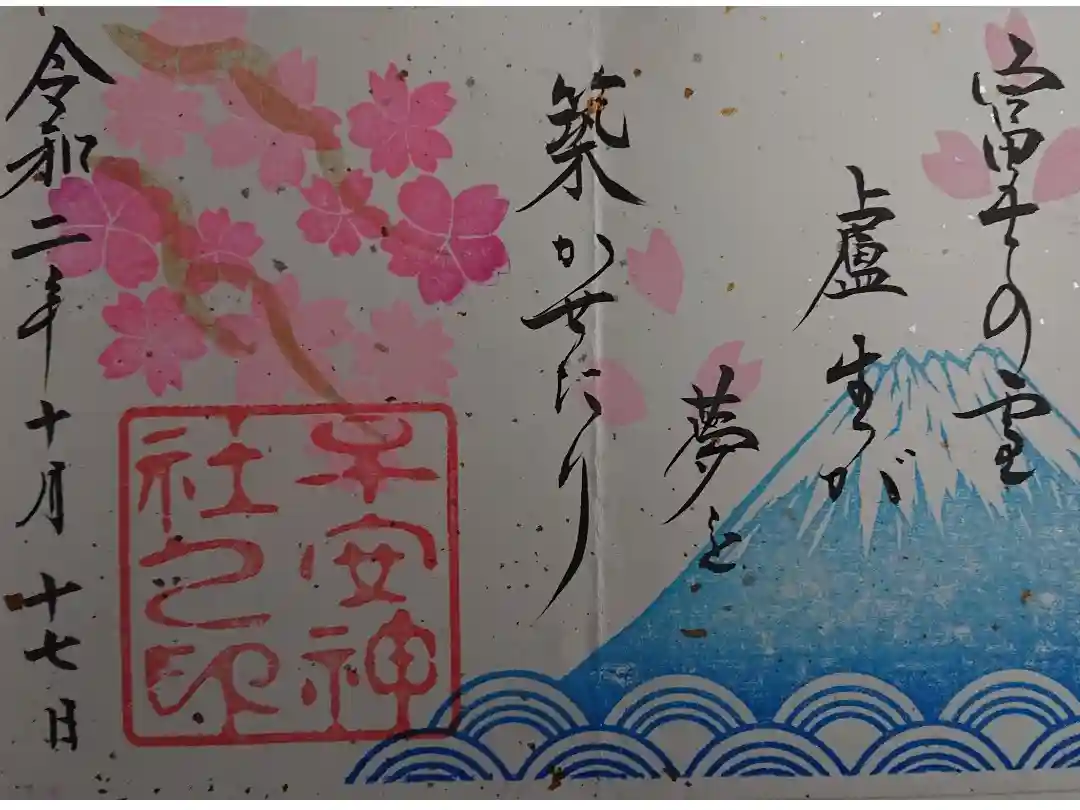 富士の雪
盧生が
夢を
築かせたり
子安神
社之印
令和二年十月十七日